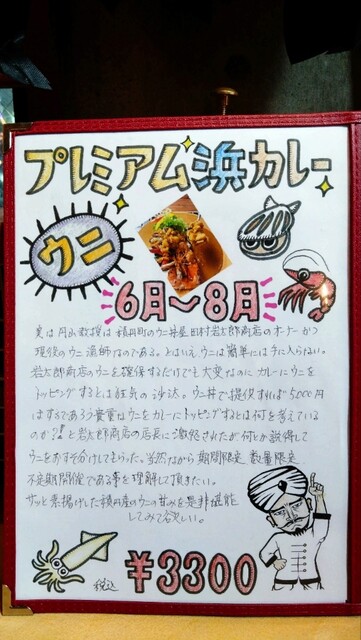 プレミアム浜カレー
ウニ
6月〜8月
実は円山教授は積丹町のウニ丼屋田村岩太郎商店のオーナーかつ
現役のウニ漁師なのである。とはいえ、ウニは簡単には手に入らない。
岩太郎商店のウニを確保するだけでも大変なのに、カレーにウニを
トッピングするとは狂気の沙汰。ウニ丼で提供すれば5000円
はするであろう貴重なウニをカレーにトッピングするとは何を考えている
のか?!と岩太郎商店の店長に激怒されたが何とか説得して
ウニをおすそ分けしてもらった。当然ながら期間限定 数量限定
不定期開催である事を理解して頂きたい。
サッと素揚げした積丹産のウニの甘みを是非堪能
してみて欲しい。
税込 ¥3300